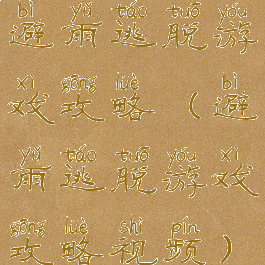 bì yǔ táo tuō yóu
避雨逃脱游
xì gōng lüè bì
戏攻略(避
yǔ táo tuō yóu xì
雨逃脱游戏
gōng lüè shì pín
攻略视频)